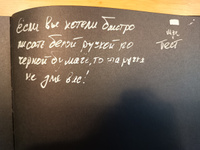 если вы хотели быстро
писать белой ручкой по
черной бумаге, то эта ручка
не для вас!
тест